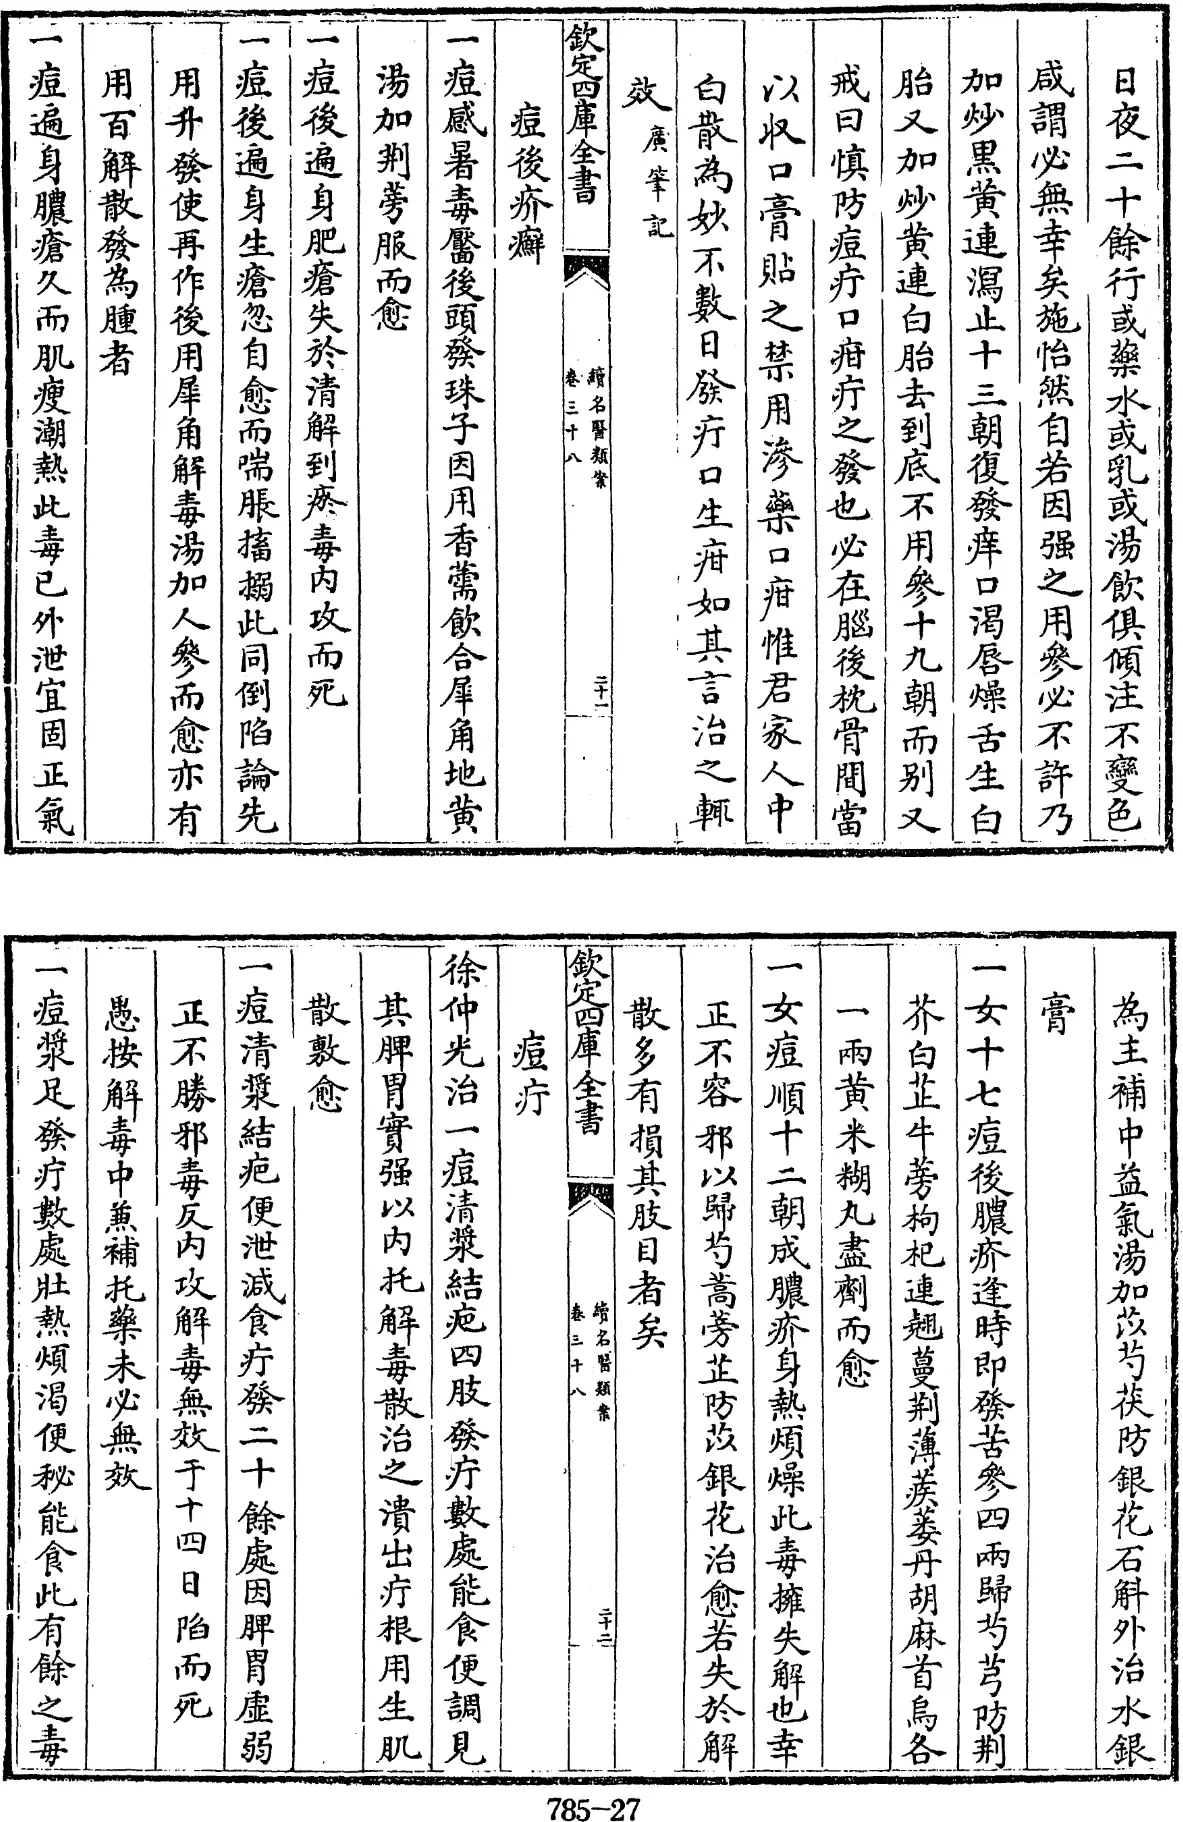 日夜二十餘行或藥水或乳或湯飲俱傾注不變色
咸謂必無幸矣施怡然自若因强之用參必不許乃
加炒黑黄連瀉止十三朝復發痒口渴唇燥舌生白
胎又加炒黄連白胎去到底不用參十九朝而别又
戒曰慎防痘疔口疳疔之發也必在腦後枕骨間當
以收口膏貼之禁用滲藥口疳惟君家人中
白散為妙不數日發疔口生疳如其言治之輒
效廣筆記
欽定四庫全書
續名醫類案
卷三十八
二十一
痘後疥癬
一痘感暑毒靨後頭發珠子因用香薷飲合犀角地黄
湯加荆蒡服而愈
一痘後遍身肥瘡失於清解到瘀毒内攻而死
一痘後遍身生瘡忽自愈而喘脹搐搦此同倒陷論先
用升發使再作後用犀角解毒湯加人參而愈亦有
用百解散發為腫者
一痘遍身膿瘡久而肌瘦潮熱此毒已外泄宜固正氣
為主補中益氣湯加苡芍茯防銀花石斛外治水銀
膏
一女十七痘後膿疥逢時即發苦參四兩歸芍芎防荆
芥白芷牛蒡枸杞連翹蔓荆薄蒺蔞丹胡麻首烏各
一兩黄米糊丸盡劑而愈
一女痘順十二朝成膿疥身熱煩燥此毒擁失解也幸
正不容邪以歸芍蒿蒡芷防苡銀花治愈若失於解
散多有損其肢目者矣
欽定四庫全書
續名醫類案
卷三十八
二十二
痘疔
徐仲光治一痘清漿結疤四肢發疔數處能食便調見
其脾胃實强以内托解毒散治之潰出疔根用生肌
散敷愈
一痘清漿結疤便泄減食疔發二十餘處因脾胃虚弱
正不勝邪毒反内攻解毒無效于十四日陷而死
愚按解毒中兼補托藥未必無效
一痘漿足發疔數處壯熱煩渴便秘能食此有餘之毒
785-27